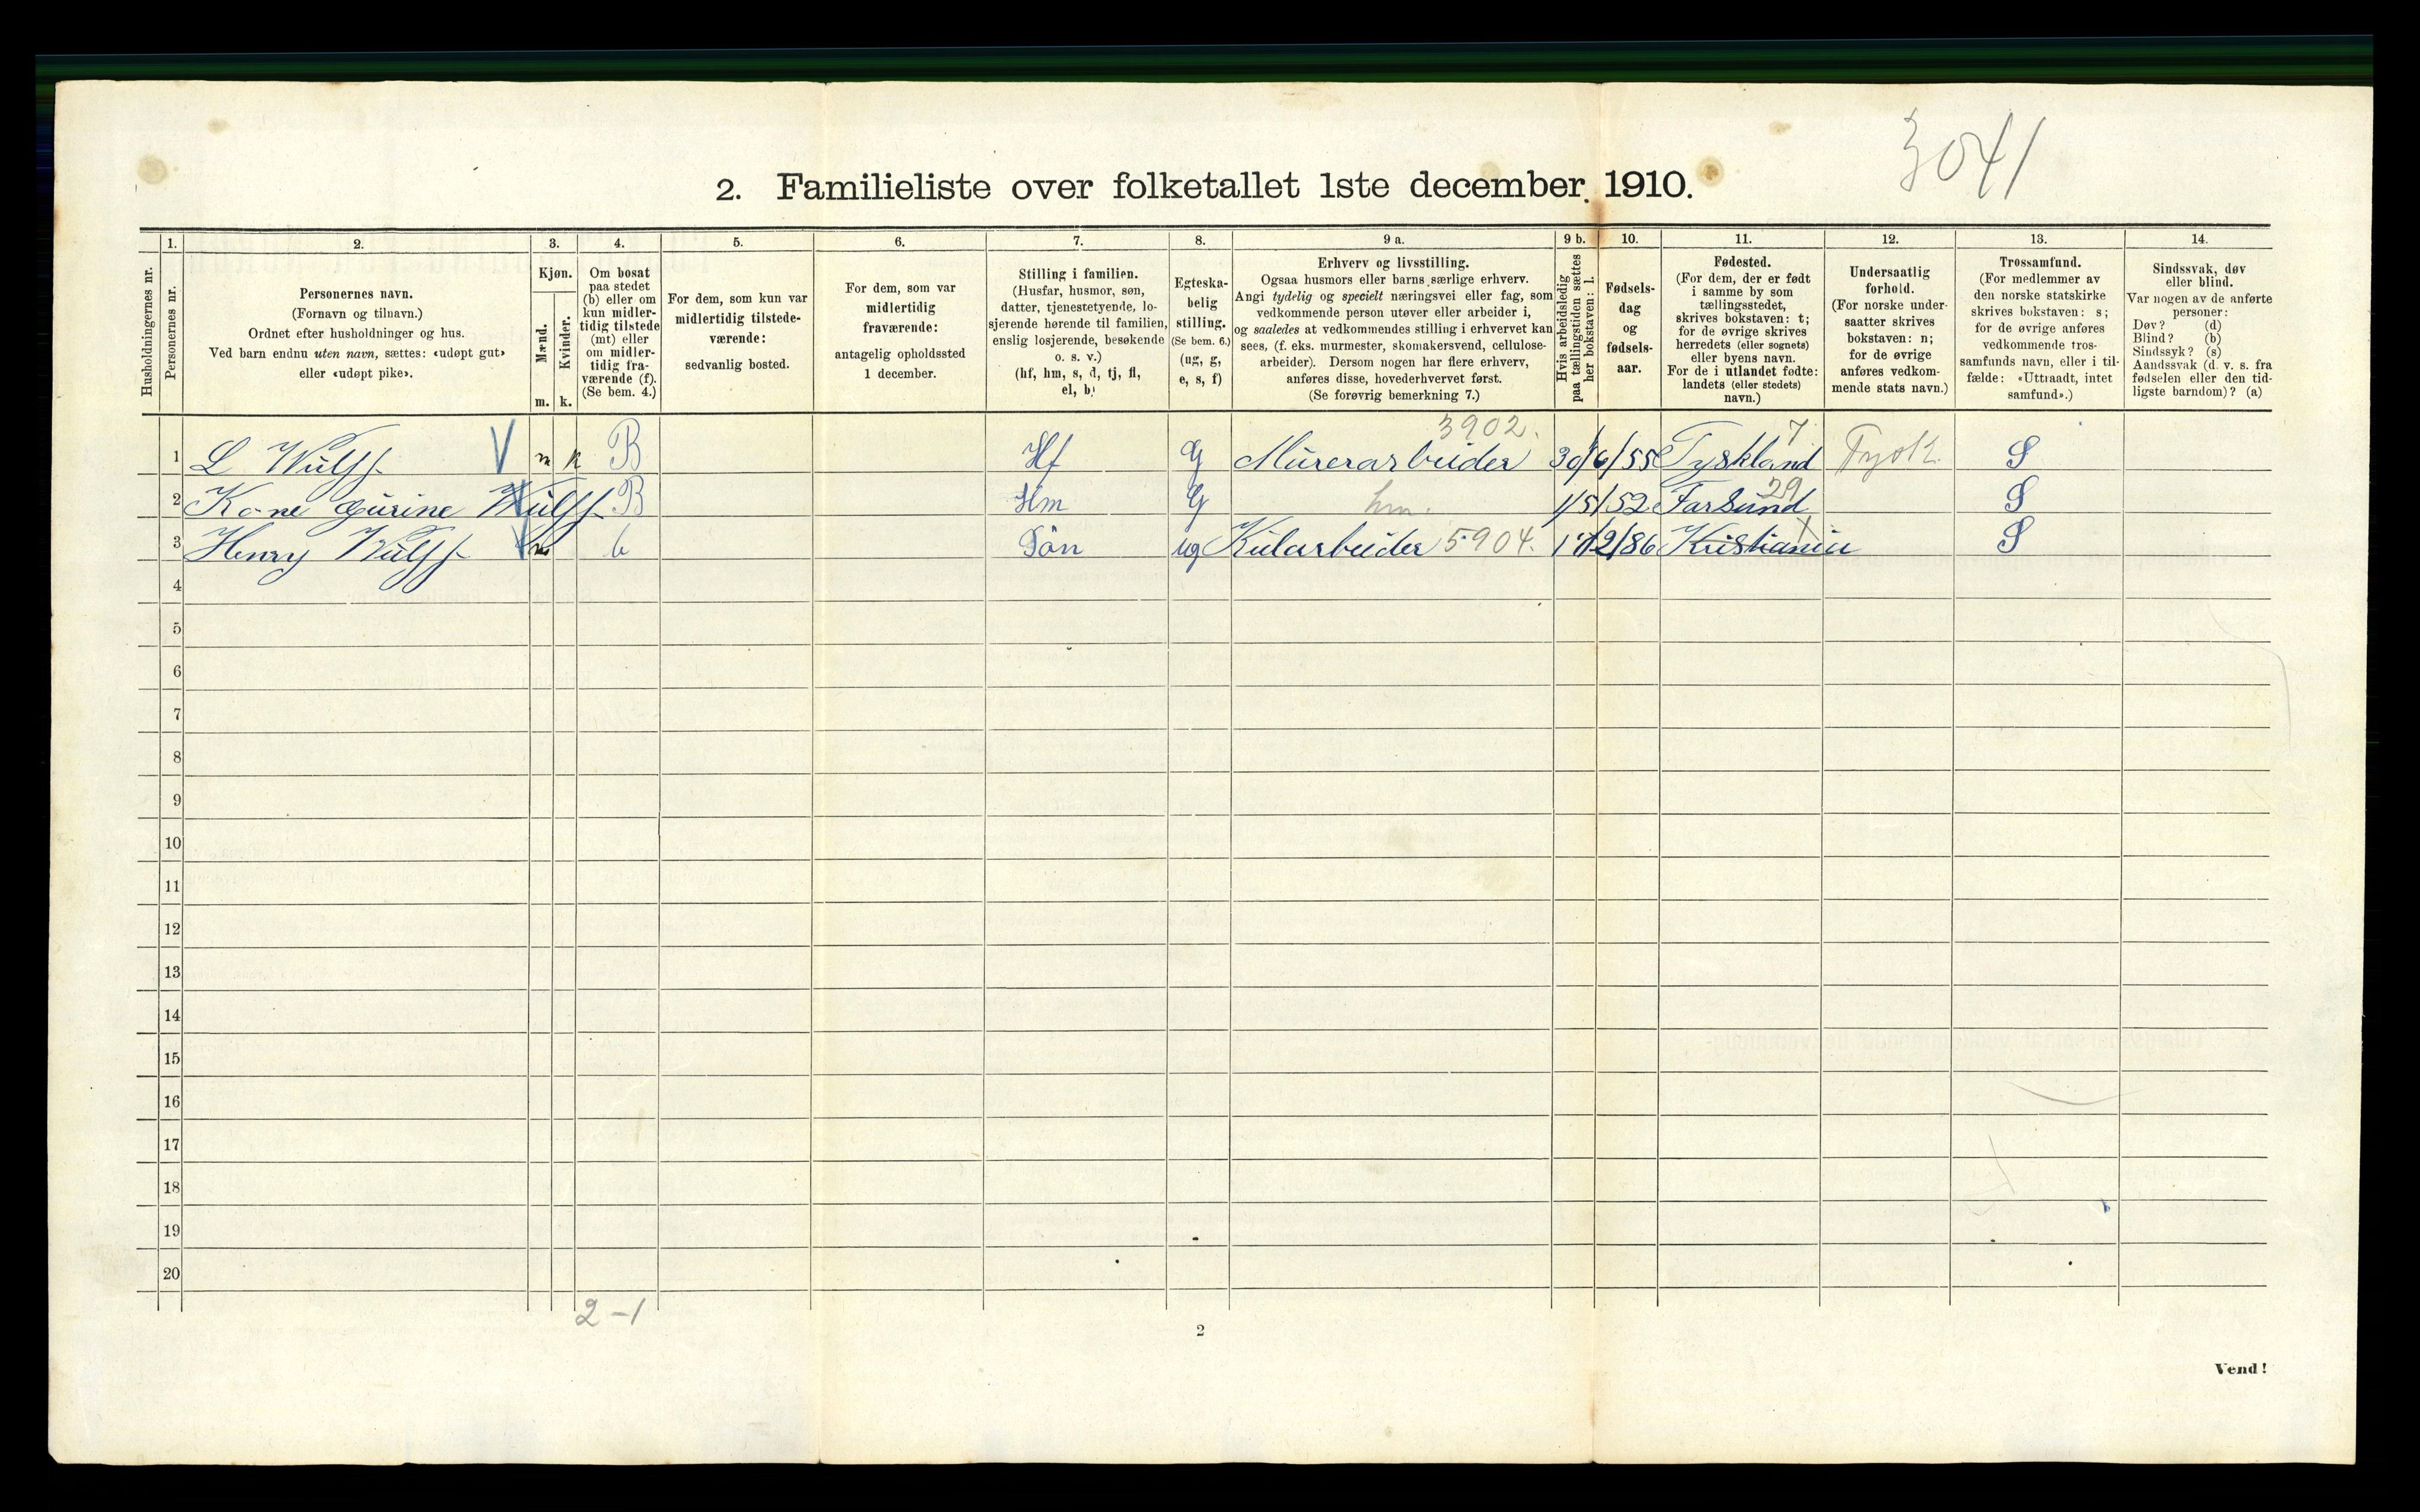 3041
2. Familieliste over folketallet 1ste december 1910.
Husholdningernes nr.
1.
Personernes nr.
2.
Personernes navn.
(Fornavn og tilnavn.)
Ordnet efter husholdninger og hus.
Ved barn endnu uten navn, sættes: «udøpt gut»
eller «udøpt pike».
3.
Kjøn.
Mænd.
m.
Kvinder.
k.
4.
Om bosat
paa stedet
(b) eller om
kun midler-
tidig tilstede
(mt) eller
om midler-
tidig fra-
værende (f).
(Se bem. 4.)
5.
For dem, som kun var
midlertidig tilstede-
værende:
sedvanlig bosted.
6.
For dem, som var
midlertidig
fraværende:
antagelig opholdssted
1 december.
7.
Stilling i familien.
(Husfar, husmor, søn,
datter, tjenestetyende, lo-
sjerende hørende til familien,
enslig losjerende, besøkende
o. s. v.)
(hf, hm, s, d, tj, fl,
el, b)
8.
Egteska-
belig
stilling.
(Se bem. 6.)
(ug, g,
e, s, f)
9 a.
Erhverv og livsstilling.
Ogsaa husmors eller barns særlige erhverv.
Angi tydelig og specielt næringsvei eller fag, som
vedkommende person utøver eller arbeider i,
og saaledes at vedkommendes stilling i erhvervet kan
sees, (f. eks. murmester, skomakersvend, cellulose-
arbeider). Dersom nogen har flere erhverv,
anføres disse, hovederhvervet først.
(Se forøvrig bemerkning 7.)
9 b.
Hvis arbeidsledig
paa tællingstiden sættes
her bokstaven: l.
10.
Fødsels-
dag
og
fødsels-
aar.
11.
Fødested.
(For dem, der er født
i samme by som
tællingsstedet,
skrives bokstaven: t;
for de øvrige skrives
herredets (eller sognets)
eller byens navn.
For de i utlandet fødte:
landets (eller stedets)
navn.)
12.
Undersaatlig
forhold.
(For norske under-
saatter skrives
bokstaven: n;
for de øvrige
anføres vedkom-
mende stats navn.)
13.
Trossamfund.
(For medlemmer av
den norske statskirke
skrives bokstaven: s;
for de øvrige anføres
vedkommende tros-
samfunds navn, eller i til-
fælde: «Uttraadt, intet
samfund».)
14.
Sindssvak, døv
eller blind.
Var nogen av de anførte
personer:
Døv? (d)
Blind? (b)
Sindssyk? (s)
Aandssvak (d. v. s. fra
fødselen eller den tid-
ligste barndom)? (a)
3902. 7
1 L Wulff V m k B Hf G Murerarbeider 30/6/55 Tyskland Tysk. S
29
2 Kone Gurine Wulff B Hm G hm. 1/5/52 Farsund S
3 Henry Wulff m b Sön ug Kularbeider 5904. 1/12/86 Kristiania S
4
5
6
7
8
9
10
11
12
13
14
15
16
17
18
19
20
2-1
2
Vend!